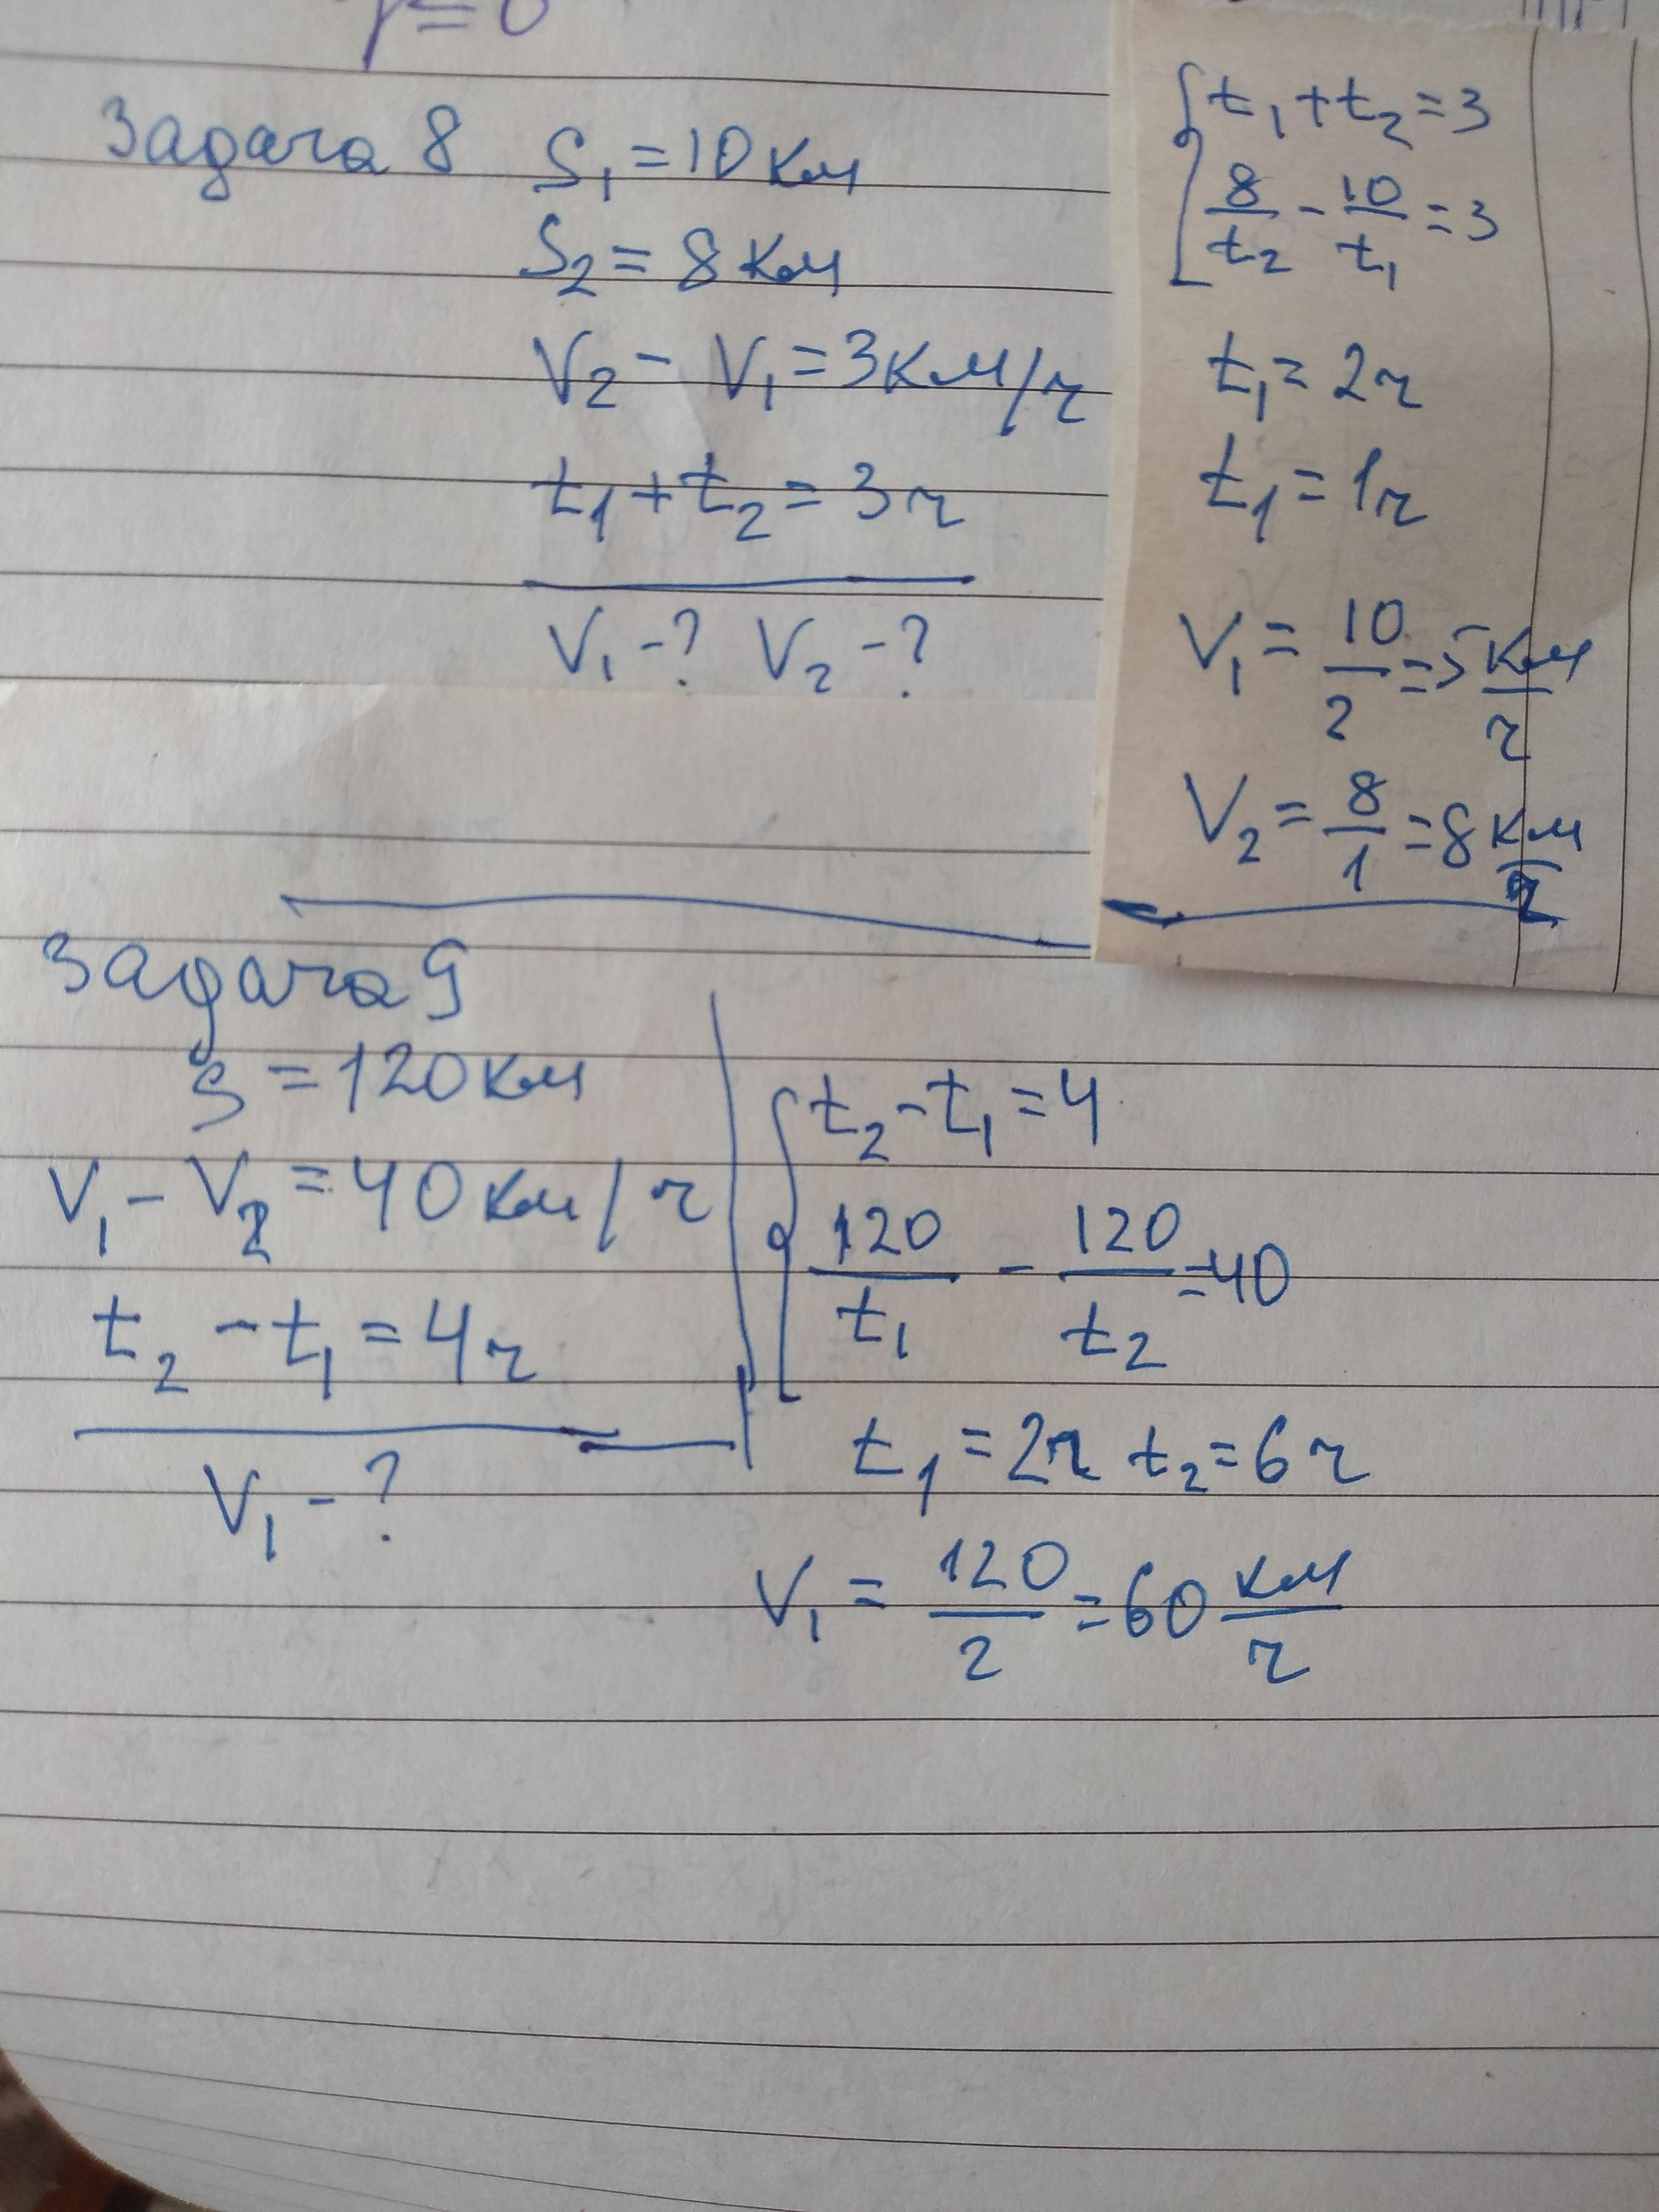 Задача 8 S₁ = 10 км
S₂ = 8 км
V₂ - V₁ = 3 км/ч
t₁ + t₂ = 3 ч
V₁ - ? V₂ - ?
{ t₁ + t₂ = 3
8/t₂ - 10/t₁ = 3
t₁ = 2 ч
t₁ = 1 ч
V₁ = 10/2 = 5 км/ч
V₂ = 8/1 = 8 км/ч
Задача 9
S = 120 км
V₁ - V₂ = 40 км/ч
t₂ - t₁ = 4 ч
V₁ - ?
{ t₂ - t₁ = 4
120/t₁ - 120/t₂ = 40
t₁ = 2 ч t₂ = 6 ч
V₁ = 120/2 = 60 км/ч